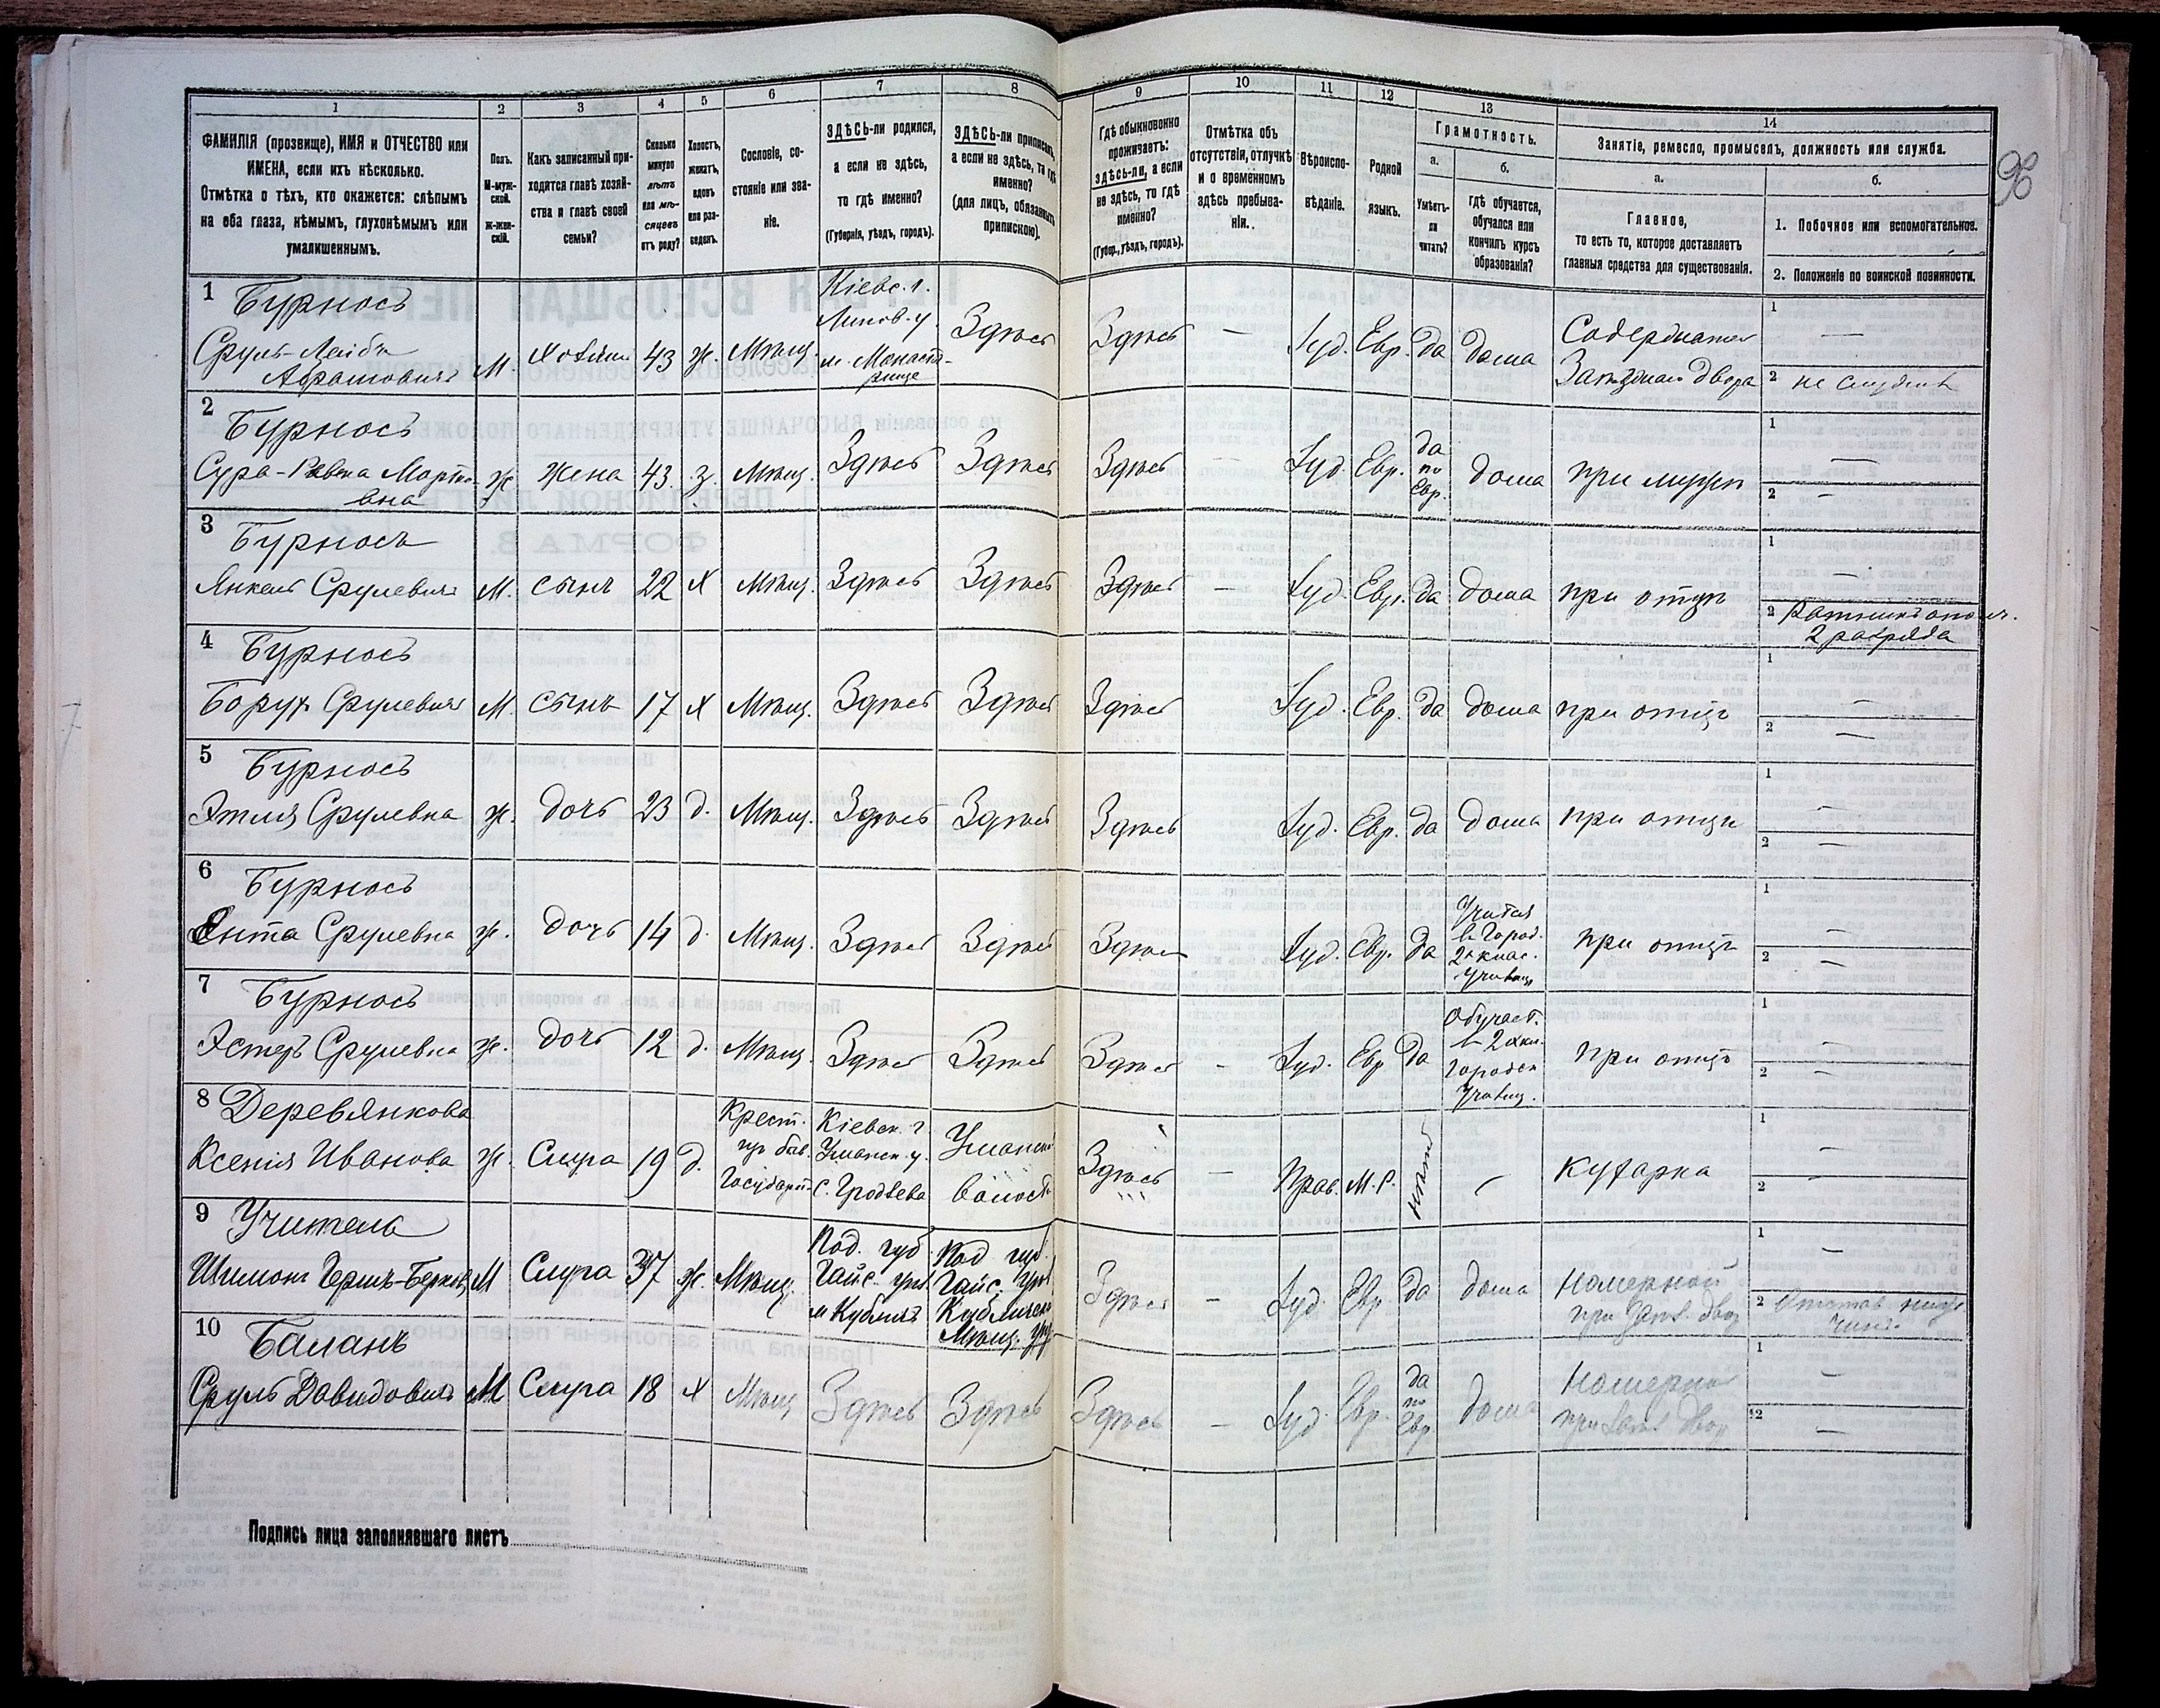 1 2 3 4 5 6 7 8 9 10 11 12 13 14
ФАМИЛІЯ (прозвище), ИМЯ и ОТЧЕСТВО или
ИМЕНА, если ихъ нѣсколько.
Отмѣтка о тѣхъ, кто окажется: слѣпымъ
на оба глаза, нѣмымъ, глухонѣмымъ или
умалишеннымъ.
Полъ.
М-муж-
ской.
Ж-жен-
скій.
Какъ записанный при-
ходится главѣ хозяй-
ства и главѣ своей
семьи?
Сколько
минуло
лѣтъ
или мѣ-
сяцевъ
отъ роду?
Холостъ,
женатъ,
вдовъ
или раз-
веденъ.
Сословіе, со-
стояніе или зва-
ніе.
ЗДѢСЬ-ли родился,
а если не здѣсь,
то гдѣ именно?
(Губернія, уѣздъ, городъ).
ЗДѢСЬ-ли приписанъ,
а если не здѣсь, то гдѣ
именно?
(для лицъ, обязанныхъ
припискою).
Гдѣ обыкновенно
проживаетъ:
здѣсь-ли, а если
не здѣсь, то гдѣ
именно?
(Губер., уѣздъ, городъ).
Отмѣтка объ
отсутствіи, отлучкѣ
и о временномъ
здѣсь пребыва-
ніи.
Вѣроиспо-
вѣданіе.
Родной
языкъ.
Грамотность.
а.
Умѣетъ-
ли
читать?
б.
гдѣ обучается,
обучался или
кончилъ курсъ
образованія?
Занятіе, ремесло, промыселъ, должность или служба.
а.
Главное,
то есть то, которое доставляетъ
главныя средства для существованія.
б.
1. Побочное или вспомогательное.
2. Положеніе по воинской повинности.
96
1 Бурносъ
Сруль-Лейбъ
Абрамовичъ М. Хозяинъ 43 ж. Мѣщ.
Кіевс. г.
Липов. у.
м. Монасты-
рище
Здѣсь Здѣсь — Іуд. Евр. да дома
Содержатель
Заѣзднаго двора
1 —
2 не служилъ
2 Бурносъ
Сура-Ривка Мортко-
вна ж. Жена 43 з. Мѣщ. Здѣсь Здѣсь Здѣсь — Іуд. Евр.
да
по
Евр.
дома при мужѣ
1 —
2 —
3 Бурносъ
Янкель Срулевичъ М. сынъ 22 х Мѣщ. Здѣсь Здѣсь Здѣсь — Іуд. Евр. да дома при отцѣ
1 —
2 Ратникъ ополч.
2 разряда
4 Бурносъ
Борух Срулевичъ М. сынъ 17 х Мѣщ. Здѣсь Здѣсь Здѣсь Іуд. Евр. да дома при отцѣ
1 —
2 —
5 Бурносъ
Этля Срулевна ж. дочь 23 д. Мѣщ. Здѣсь Здѣсь Здѣсь Іуд. Евр. да дома при отцѣ
1 —
2 —
6 Бурносъ
Ента Срулевна ж. дочь 14 д. Мѣщ. Здѣсь Здѣсь Здѣсь Іуд. Евр. да
в Город.
2х клас.
Училищ
при отцѣ
1 —
2 —
7 Бурносъ
Эстеръ Срулевна ж. дочь 12 д. Мѣщ. Здѣсь Здѣсь Здѣсь — Іуд. Евр да
Обучает.
в 2хкл.
Городск
Училищ.
при отцѣ
1 —
2 —
8 Деревянкова
Ксенія Иванова ж. Слуга 19 д.
Крест.
бав.
Государст.
Кіевск. г.
Уманск. у.
с. Гродзева
Уманск
волост.
Здѣсь — Прав. М. Р. нѣтъ — кухарка
1 —
2 —
9 Учитель
Шимонъ Гершъ-Берков М Слуга 37 ж. Мѣщ.
Под. губ
Гайс. уѣз.
м Кубличъ
Под губ.
Гайс. уѣз
Кубличск
Мѣщ. упр
Здѣсь — Іуд. Евр. да дома
Номерной
при Заѣз. двор
1 —
2 Отстав нижн
чинъ
10 Баланъ
Сруль Давидовичъ М Слуга 18 х Мѣщ Здѣсь Здѣсь Здѣсь — Іуд. Евр.
да
по
Евр
дома
Номерной
при Заѣз. двор
1 —
2 —
Подпись лица заполнявшаго листъ